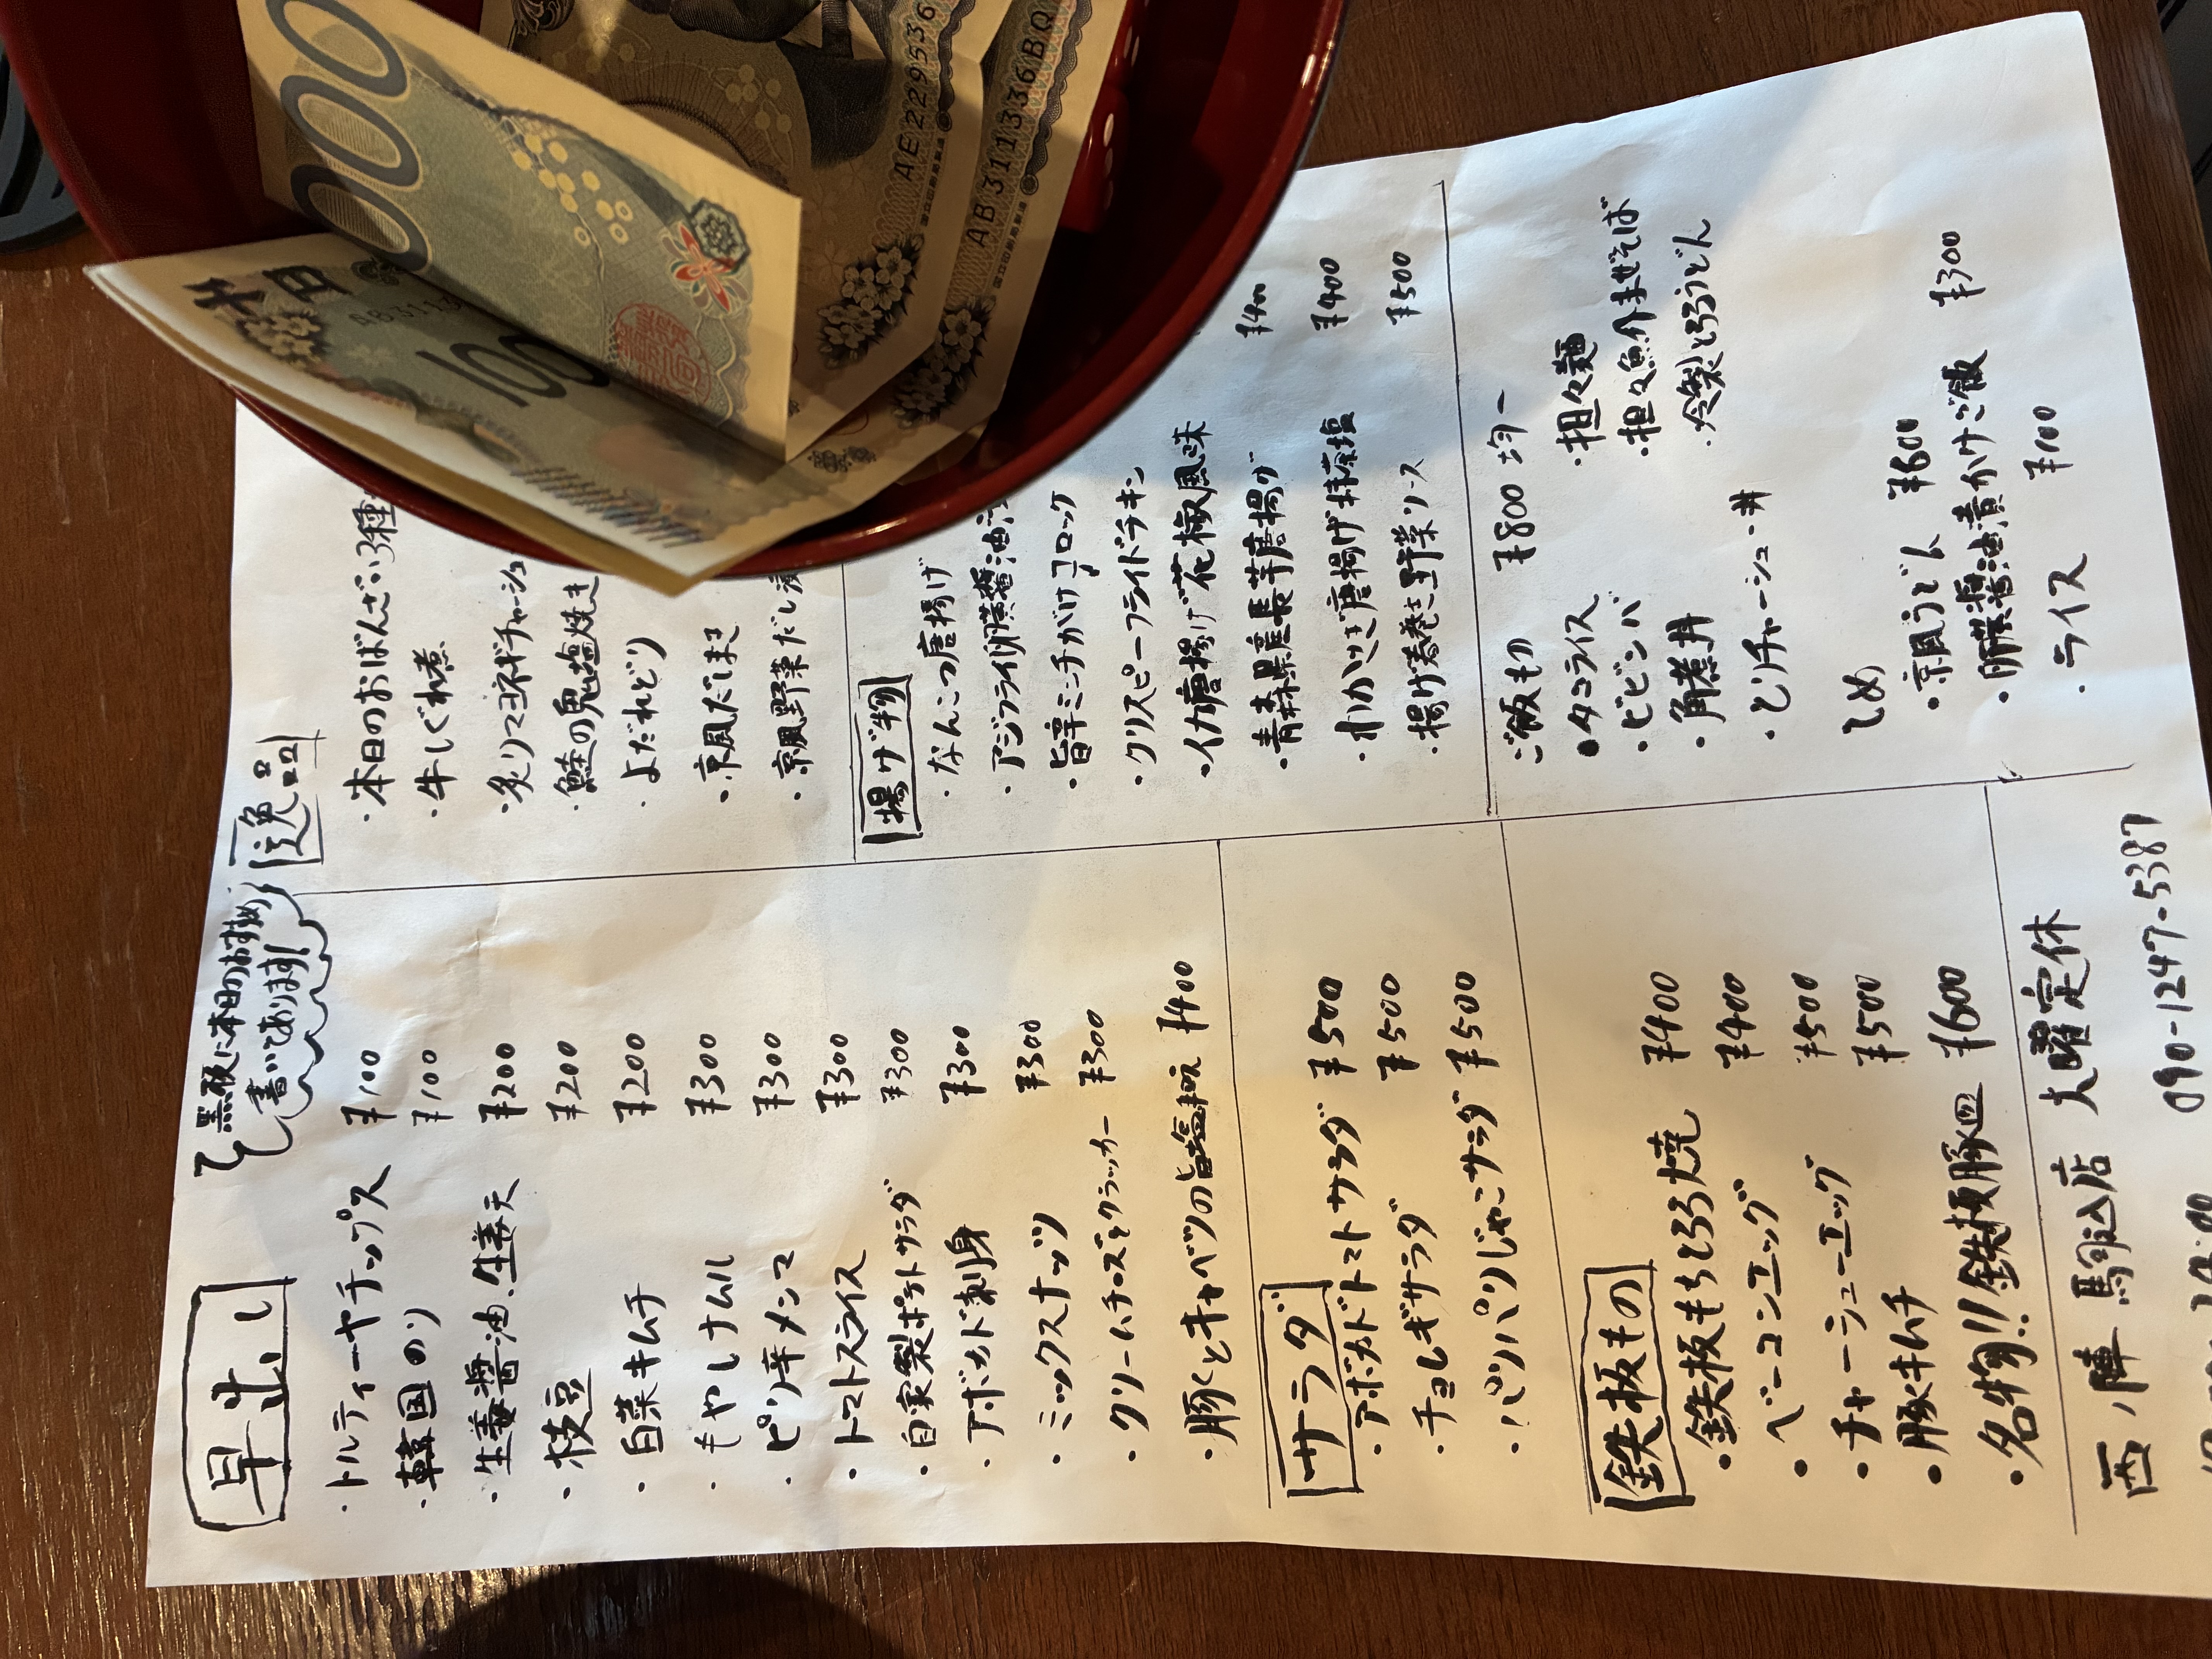 早出し
黒板に本日のおすすめ
書いてあります!
・トルティーヤチップス ¥100
・韓国のり ¥100
・生姜醤油、生姜天 ¥200
・枝豆 ¥200
・白菜キムチ ¥200
・もやしナムル ¥300
・ピリ辛メンマ ¥300
・トマトスライス ¥300
・自家製ポテトサラダ ¥300
・アボカド刺身 ¥300
・ミックスナッツ ¥300
・クリームチーズとクラッカー ¥300
・豚くとキャベツの旨塩 ¥400
サラダ
・アボカドトマトサラダ ¥500
・チョレギサラダ ¥500
・パリパリじゃこサラダ ¥500
鉄板もの
・鉄板もちとろろ焼 ¥400
・ベーコンエッグ ¥400
・チャーシューエッグ ¥500
・豚キムチ ¥500
・名物!!鉄板豚皿 ¥600
逸品
・本日のおばんざい3種
・牛しぐれ煮
・炙りマヨネギチャーシュ
・鮭の鬼塩焼き
・よだれどり
・京風だしまき
・京風野菜だし
揚げ物
・なんこつ唐揚げ
・アジフライ卵黄醤油
・旨辛ミンチがけコロッケ
・クリスピーフライドチキン
・イカ唐揚げ花椒風味
・青森県産長芋唐揚げ ¥400
・わかさぎ唐揚げ抹茶塩 ¥400
・揚げ春巻き野菜ソース ¥500
ご飯もの ¥800均一
・タコライス
・ビビンバ
・角煮丼
・とりチャーシュー丼
・担々麺
・担々魚介まぜそば
・冷製とろろうどん
しめ
・京風うどん ¥600
・卵黄醤油漬かけご飯 ¥300
・ライス ¥100
西陣 馬込店 火曜定休
090-1247-5387
千円
1000
000
AE229536
AB311336BQ
国立印刷局製造
国立印刷局製造